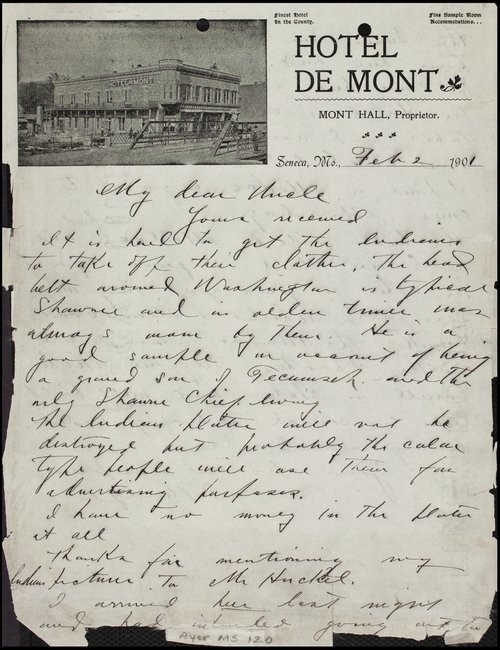 Finest Hotel
In the County.
Fine Sample Room
Accommodations...
HOTEL
DE MONT
MONT HALL, Proprietor.
HOTEL DE MONT
Seneca, Mo., Feb 2 1901
My dear Uncle
Yours received
It is hard to get the Indians
to take off their clothes, the bead
belt around Washington is typical
Shawnee and in olden times was
always worn by them. He is a
good sample on account of being
a grand son of Tecumseh and the
only Shawne Chief living
The Indian plates will not be
destroyed but probably the color
type people will use them for
advertising purposes.
I have no money in the plates
at all
Thanks for mentioning my
Indian picture to Mr Huckel.
I arrived here last night
and had intended going out to
Ayer MS 120